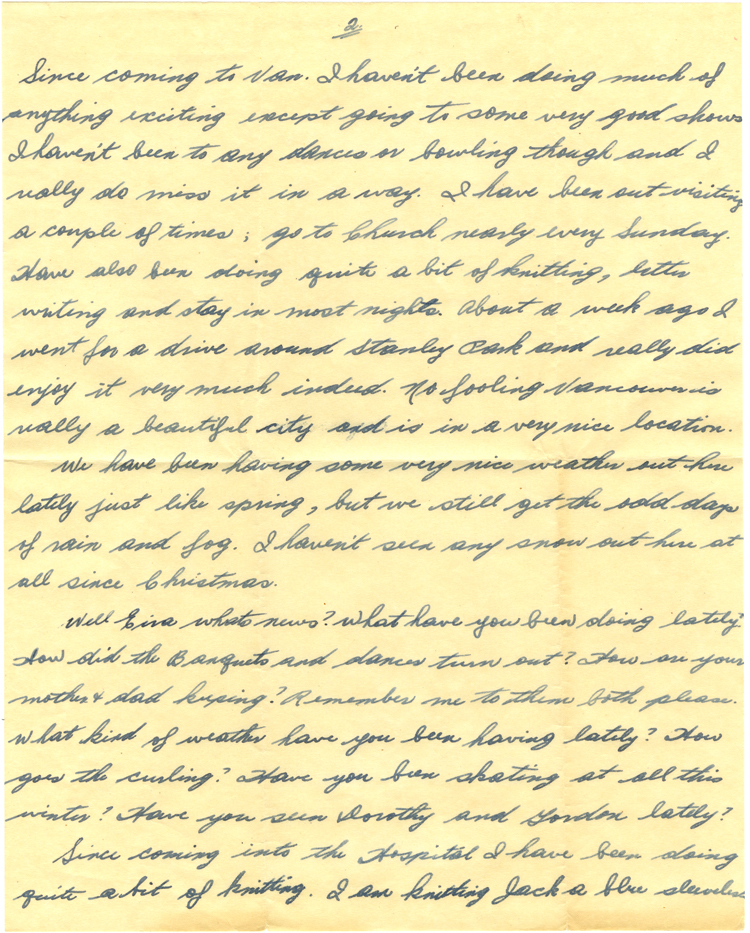 2.
Since coming to Van. I haven't been doing much of
anything exciting except going to some very good shows
I haven't been to any dances or bowling though and I
really do miss it in a way. I have been out visiting
a couple of times; go to Church nearly every Sunday.
Have also been doing quite a bit of knitting, letter
writing and stay in most nights. About a week ago I
went for a drive around Stanley Park and really did
enjoy it very much indeed. No fooling Vancouver is
really a beautiful city and is in a very nice location.
We have been having some very nice weather out here
lately just like spring, but we still get the odd days
of rain and fog. I haven't seen any snow out here at
all since Christmas.
Well Eira whats news? What have you been doing lately?
How did the Banquets and dances turn out? How are your
mother & dad keeping? Remember me to them both please.
What kind of weather have you been having lately? How
goes the curling? Have you been skating at all this
winter? Have you seen Dorothy and Gordon lately?
Since coming into the Hospital I have been doing
quite a bit of knitting. I am knitting Jack a blue sleeveless